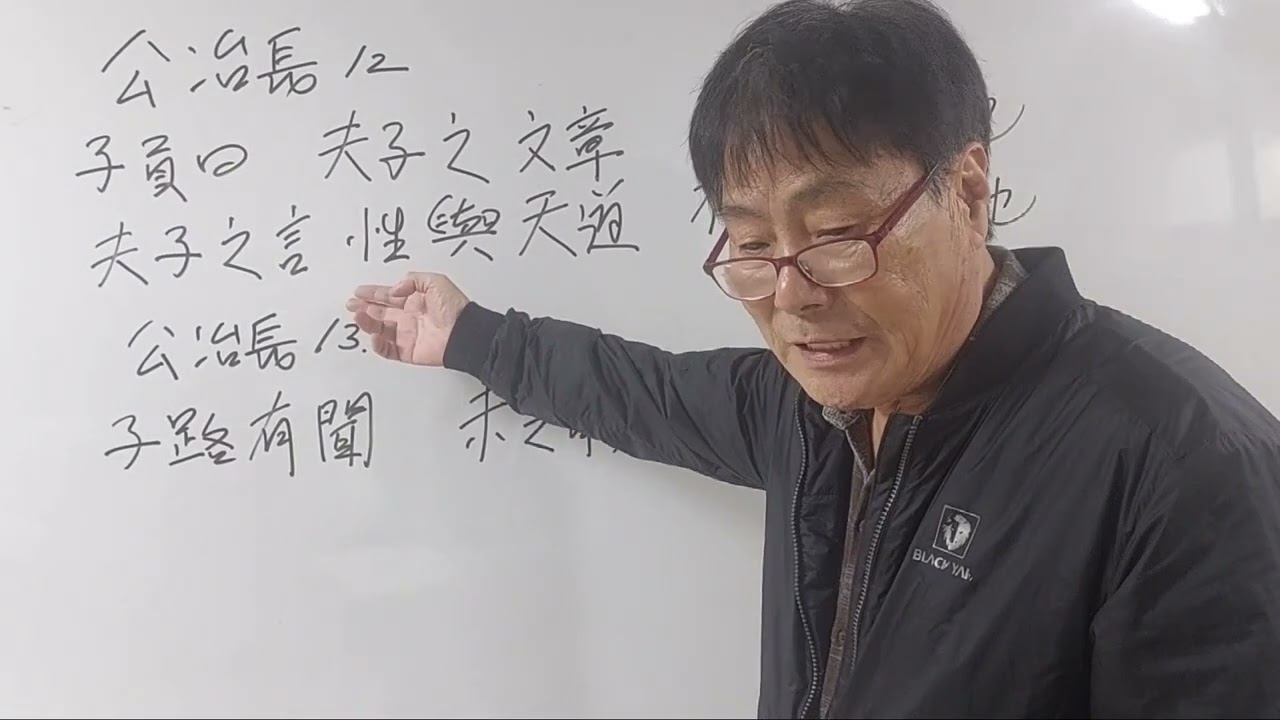 公冶長 12
子貢曰 夫子之文章
夫子之言性與天道 也
公冶長 13.
子路有聞 未之
BLACK YAK